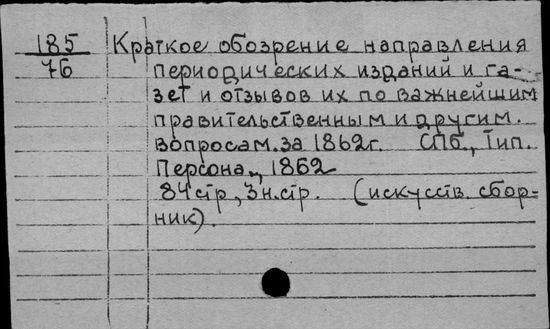 185
76
Краткое обозрение направления
периодических изданий и га-
зет и отзывов их по важнейшим
правительственным и другим.
вопросам. за 1862 г. СПб., Тип.
Персона, 1862
84 стр, 3 н. стр. (искусств. сбор-
ник).